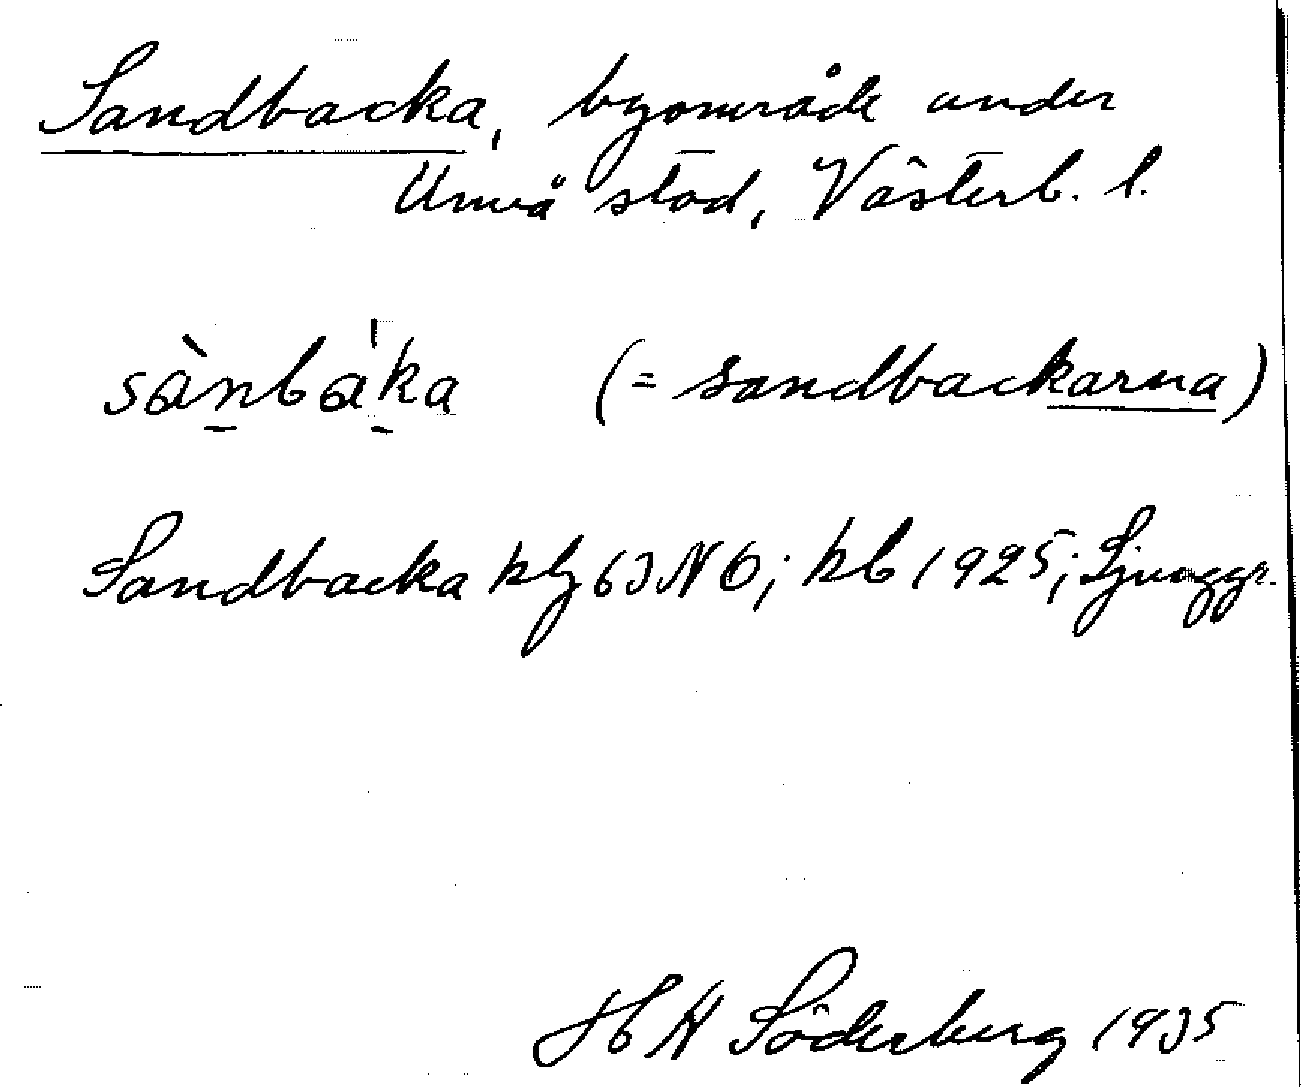 Sandbacka, byområde under
Umeå stad, Västerb. l.
sànbáka (= sandbackarna)
Sandbacka kbl 63 NO; kb 1925; Ljunggr.
H Söderberg 1935